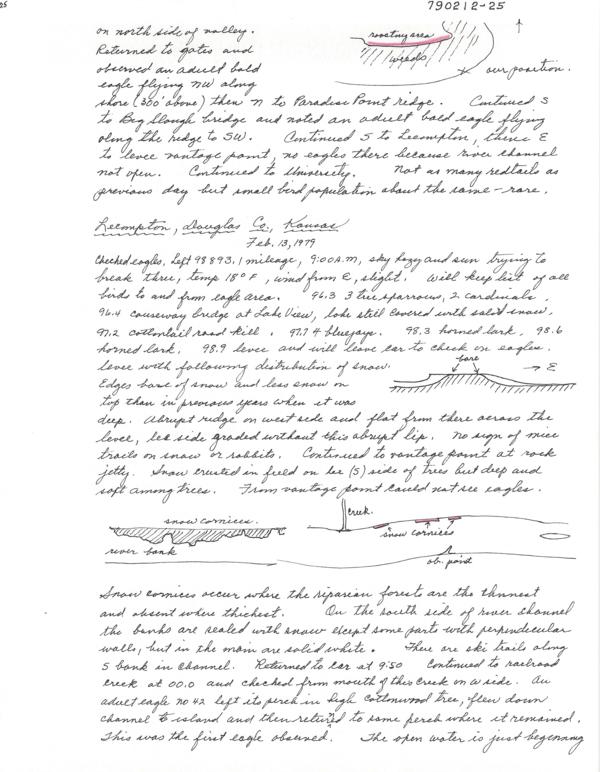 25
790212-25
on north side of valley.
Returned to gates and
observed an adult bald
eagle flying NW along
roosting area
weeds
our position.
shore (300' above) then N to Paradise Point ridge. Continued S
to Big Slough bridge and noted an adult bald eagle flying
along the ridge to SW. Continued S to Lecompton, thence E
to levee vantage point, no eagles there because river channel
not open. Continued to University. Not as many redtails as
previous day but small bird population about the same - rare.
Lecompton, Douglas Co., Kansas
Feb. 13, 1979
Checked eagles. Left 98893.1 mileage, 9:00 A.M, sky hazy and sun trying to
break thru, temp 18° F, wind from E, slight. Will keep list of all
birds to and from eagle area. 96.3 3 tree sparrows, 2 cardinals,
96.4 causeway bridge at Lake View, lake still covered with solid snow,
97.2 cottontail road kill. 97.7 4 bluejays. 98.3 horned lark, 98.6
horned lark. 98.9 levee and will leave car to check on eagles.
levee with following distribution of snow.
bare
→ E
Edges bare of snow and less snow on
top than in previous years when it was
deep. Abrupt ridge on west side and flat from there across the
levee, lee side graded without this abrupt lip. No sign of mice
trails on snow or rabbits. Continued to vantage point at rock
jetty. Snow crusted in field on lee (S) side of trees but deep and
soft among trees. From vantage point could not see eagles.
snow cornices.
river bank
creek.
snow cornices
ob. point
Snow cornices occur where the riparian forests are the thinnest
and absent where thickest. On the south side of river channel
the banks are sealed with snow except some parts with perpendicular
walls, but in the main are solid white. There are ski trails along
S bank in channel. Returned to car at 9:50 Continued to railroad
creek at 00.0 and checked from mouth of this creek on W side. An
adult eagle no 42 left its perch in high cottonwood tree, flew down
channel to island and then returned to same perch where it remained.
This was the first eagle observed. The open water is just beginning